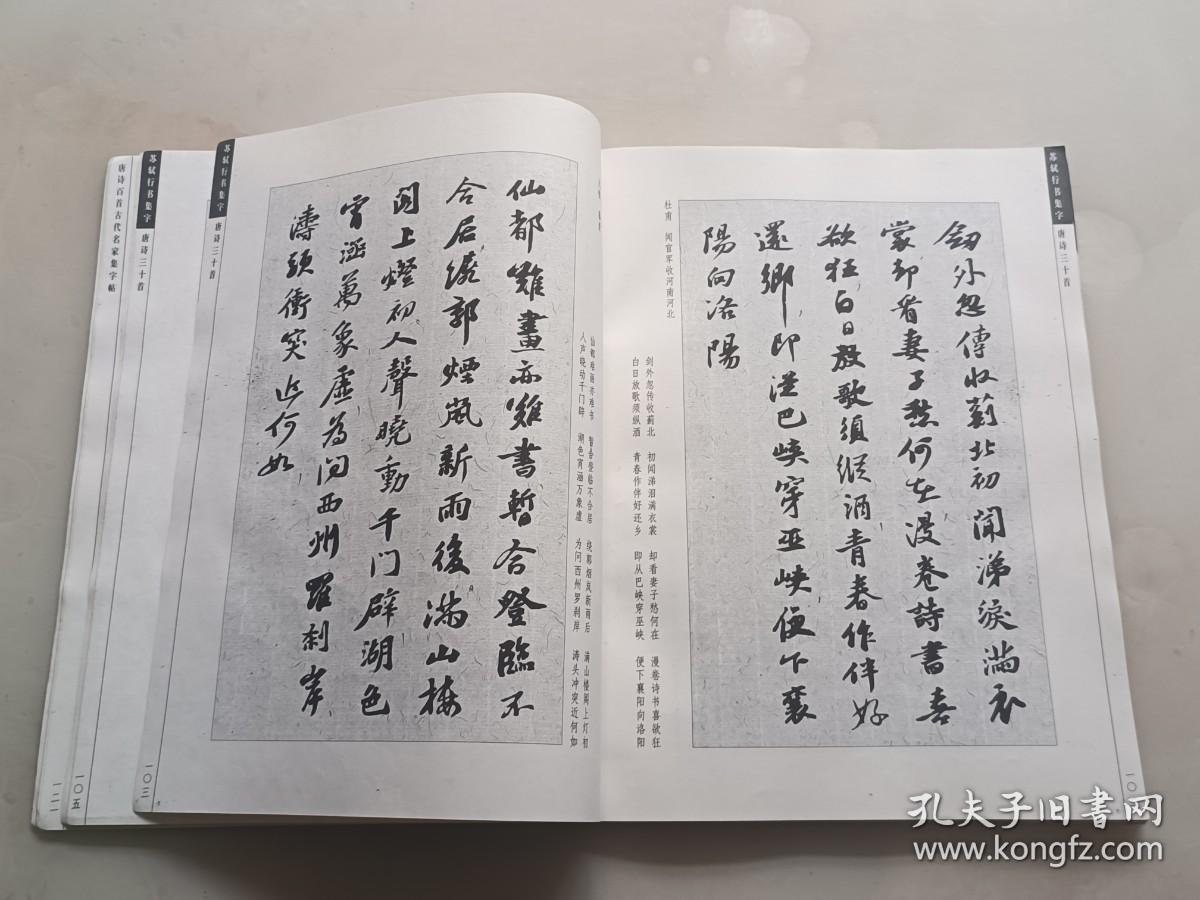 苏轼行书集字 唐诗三十首
劒外忽傳收薊北初聞涕淚滿衣
裳却看妻子愁何在漫卷詩書喜
欲狂白日放歌須縱酒青春作伴好
還鄉即從巴峽穿巫峽便下襄
陽向洛陽
杜甫 闻官军收河南河北
剑外忽传收蓟北 初闻涕泪满衣裳 却看妻子愁何在 漫卷诗书喜欲狂
白日放歌须纵酒 青春作伴好还乡 即从巴峡穿巫峡 便下襄阳向洛阳
一〇
仙都难画亦难书 暂合登临不合居 绕郭烟岚新雨后 满山楼阁上灯初
人声晓动千门辟 湖色宵涵万象虚 为问西州罗刹岸 涛头冲突近何如
仙都難畫亦難書暫合登臨不
合居繞郭煙嵐新雨後滿山樓
閣上燈初人聲曉動千門辟湖色
宵涵萬象虛為问西州羅刹岸
濤頭衝突近何如
苏轼行书集字 唐诗三十首
一〇三
苏轼行书集字 唐诗三十首
一〇五
唐诗百首古代名家集字帖
一二一
孔夫子旧书网
www.kongfz.com